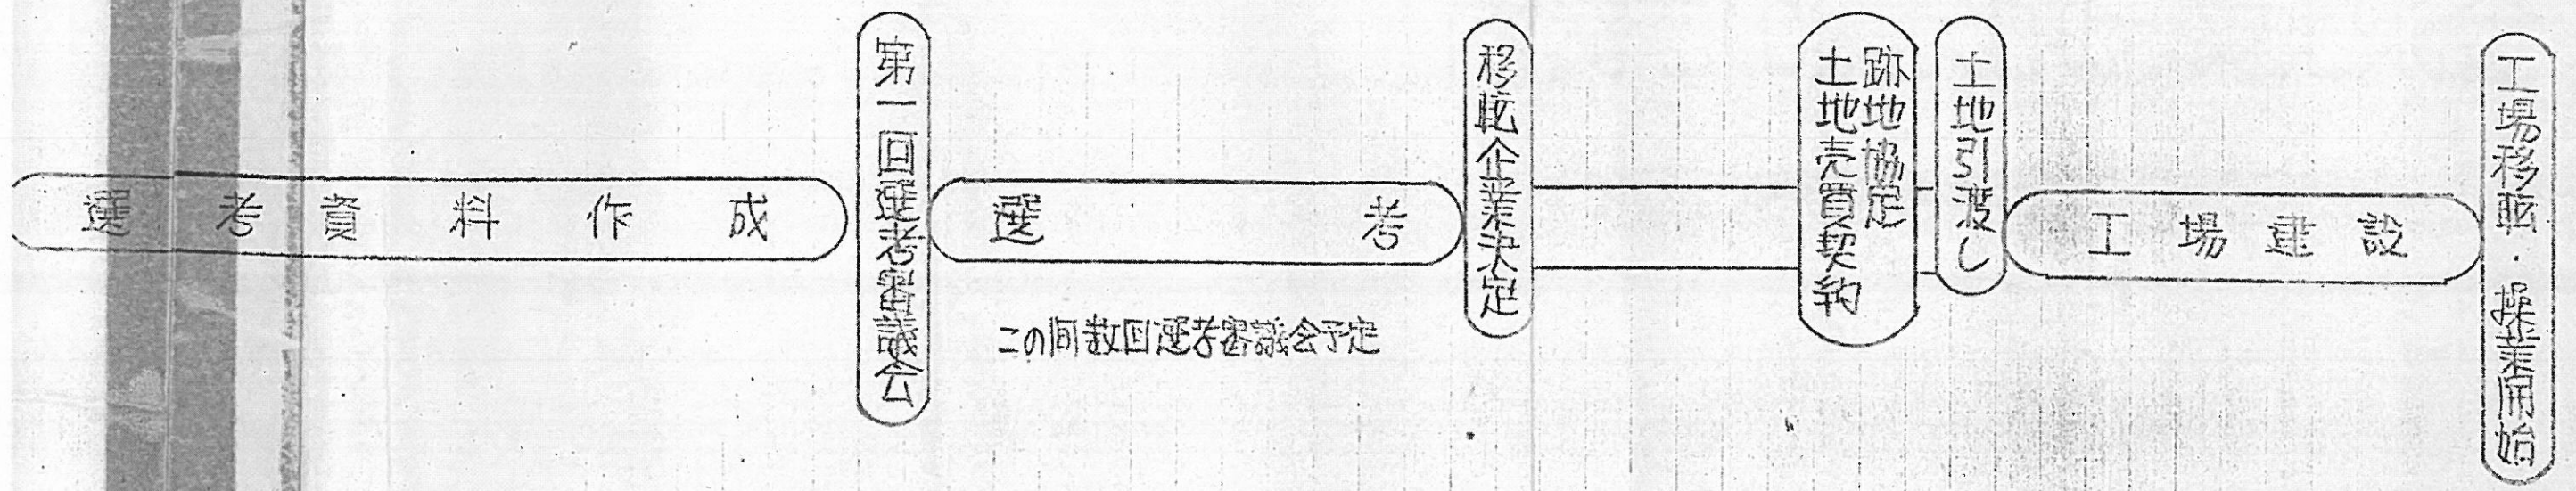 選考資料作成
第一回選考審議会
選考
この間数回選考審議会予定
移転企業決定
跡地協定
土地売買契約
土地引渡し
工場建設
工場移転・操業開始